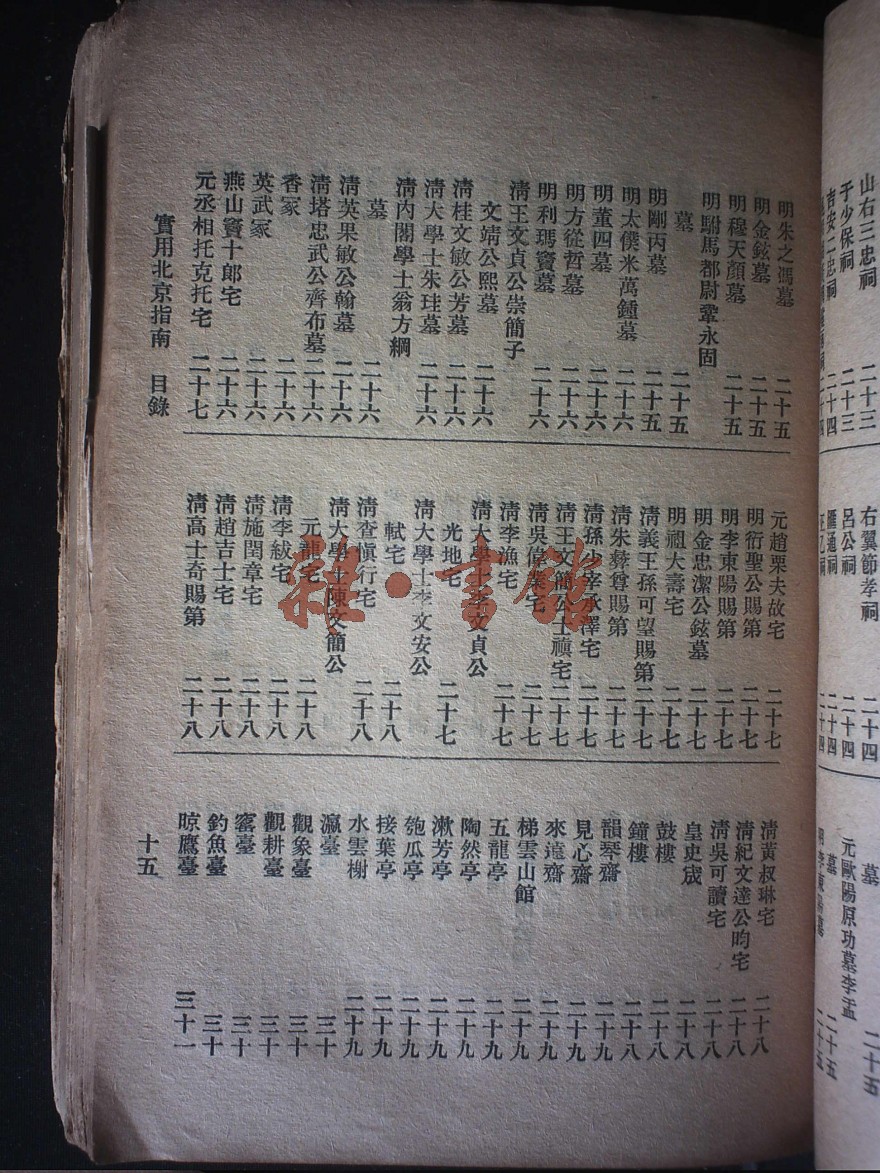 山右三忠祠 二十三
于少保祠 二十三
吉安二忠祠 二十四
右翼節孝祠 二十四
呂公祠 二十四
匯通祠 二十四
墓 二十五
元歐陽原功墓李孟
墓 二十五
明朱之馮墓 二十五
明金鉉墓 二十五
明穆天顏墓 二十五
明駙馬都尉鞏永固
墓 二十五
明剛丙墓 二十五
明太僕米萬鍾墓 二十六
明董四墓 二十六
明方從哲墓 二十六
明利瑪竇墓 二十六
清王文貞公崇簡子
文靖公熙墓 二十六
清桂文敏公芳墓 二十六
清大學士朱珪墓 二十六
清內閣學士翁方綱
墓 二十六
清英果敏公翰墓 二十六
清塔忠武公齊布墓 二十六
香冢 二十六
英武冢 二十六
燕山竇十郎宅 二十六
元丞相托克托宅 二十七
元趙栗夫故宅 二十七
明衍聖公賜第 二十七
明李東陽賜第 二十七
明金忠潔公鉉墓 二十七
明祖大壽宅 二十七
清義王孫可望賜第 二十七
清朱彝尊賜第 二十七
清孫少宰承澤宅 二十七
清王文簡公士禛宅 二十七
清吳偉業宅 二十七
清李漁宅 二十七
清大學士李文貞公
光地宅 二十七
清大學士李文安公
軾宅 二十八
清查慎行宅 二十八
清大學士陳文簡公
元龍宅 二十八
清李紱宅 二十八
清施閏章宅 二十八
清趙吉士宅 二十八
清高士奇賜第 二十八
清黃叔琳宅 二十八
清紀文達公昀宅 二十八
清吳可讀宅 二十八
皇史宬 二十八
鼓樓 二十八
鐘樓 二十八
韻琴齋 二十九
見心齋 二十九
來遠齋 二十九
梯雲山館 二十九
五龍亭 二十九
陶然亭 二十九
漱芳亭 二十九
匏瓜亭 二十九
接葉亭 二十九
水雲榭 二十九
瀛臺 三十
觀象臺 三十
觀耕臺 三十
窰臺 三十
釣魚臺 三十
晾鷹臺 三十一
實用北京指南 目錄
十五
雜·書館